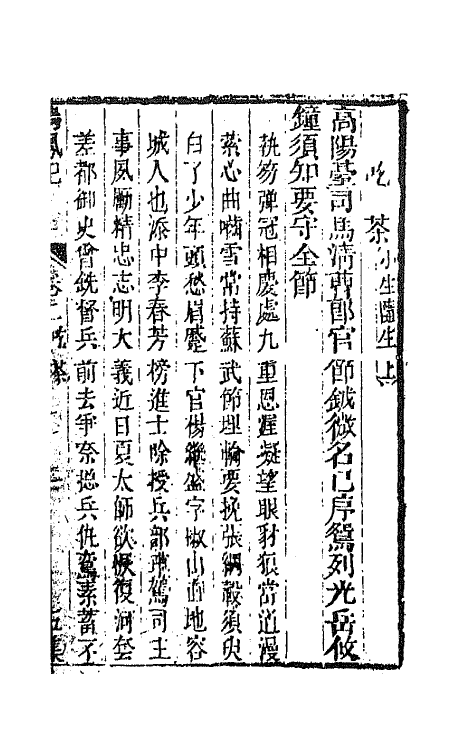 吃茶小生隨生上
高陽臺司馬清曹郎官節鉞微名已序鴛列光岳攸
鐘須知要守全節
執笏彈冠相慶處九重恩渥凝望眼豺狼當道漫
縈心曲嚙雪常持蘇武節埋輪要挽張綱轂須臾
白了少年頭愁眉蹙下官楊繼盛字椒山直地容
城人也添中李春芳榜進士除授兵部車駕司主
事夙勵精忠志明大義近日夏太師欲恢復河套
差都御史曾銑督兵前去爭奈總兵仇鸞素蓄不
鳴鳳記 卷二 吃茶 五集